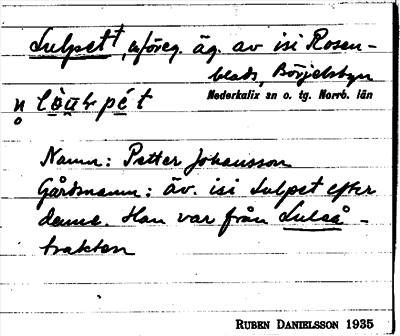 Lulpett, föreg. äg. av isi Rosen-
blads, Börjelsbyn
Nederkalix sn o. tg. Norrb. län
Namn: Petter Johansson
Gårdsnamn: äv. isi Lulpet efter
denne. Han var från Luleå-
trakten
RUBEN DANIELSSON 1935